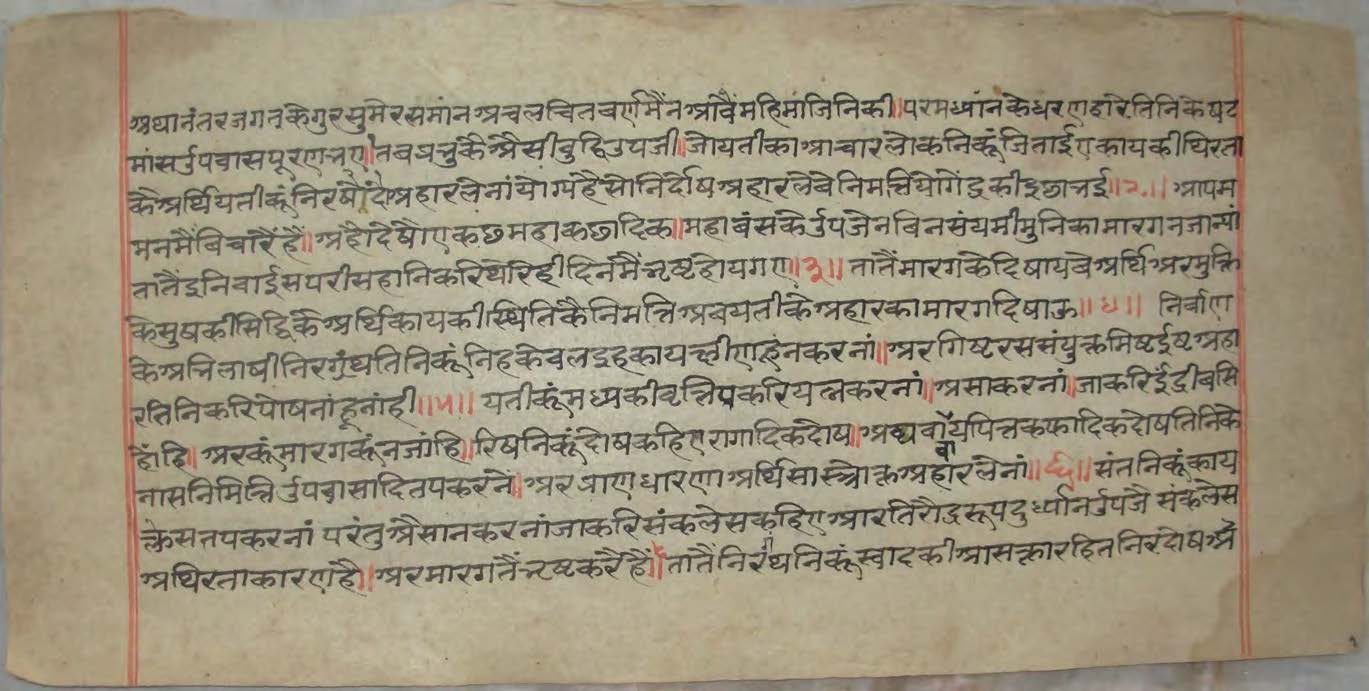 अथानंतर जगत के गुर सुमेर समांन अचल चित वर्णमैं न आवै महिमां जिनिकी॥ परम ध्यांन के धरणहारे तिनि के षट
मांस उपवास पूरण भए॥ तब प्रभु कै अैसी बुद्धि उपजी॥ जो यती का आचार लोकनिकूं जिताईए काय की थिरता
कै अर्थि यतीकूं निरषोदा अहार लेनां योग्य है सो निर्दोष अहार लेवे निमत्ति योगेंद्र की इछा भई॥२॥ आप म
मन मैं विचारैं हैं॥ अहो देषौ ए कछ महाकछादिक॥ महाबंस के उपजे नविन संयमी मुनि का मारग न जान्यां
तातैं इनि बाईस परीसहानि करि थोरे ही दिन मैं भ्रष्ट होय गए॥३॥ तातैं मारग के दिषायवे अर्थि अर मुक्ति
के सुष की सिद्धि कै अर्थि काय की स्थिति कै निमत्ति अब यती के अहार का मारग दिषाऊ॥४॥ निर्वाण
के अभिलाषी निरग्रंथ तिनिकूं निह केवल इह काय क्षीण हू न करनां॥ अर गिष्ट रस संयुक्त मिष्ट ईष्ट अहा
र तिनि करि पोषनां हू नांही॥५॥ यतीकूं मध्य की वृत्ति प करि यत्न करनां॥ असा करनां॥ जा करि ईंद्री बसि
होंहि॥ अर कूंमारगकूं न जांहि॥ रिषनिकूं दोष कहिए रागादिक दोष॥ अथवा वाय पित्त कफादिक दोष तिनि के
नास निमित्ति उपवासादि तप करनें॥ अर प्राण धारणा अर्थि सास्त्रोक्त अहार लेनां॥६॥ संतनिकूं काय
क्लेस तप करनां परंतु अैसा न करनां जा करि संकलेस कहिए आरति रौद्र रूप दुर्ध्यान उपजै संकलेस
अथिरता का कारण है॥ अर मारग तैं भ्रष्ट करै है॥ तातैं निरग्रंथनिकूं स्वाद की आसक्ता रहित निरदोष अै